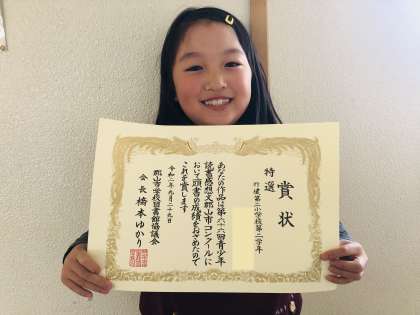 賞状
特選
行健第二小学校第二学年
あなたの作品は第六十六回青少年
読書感想文郡山市コンクールに
おいて頭書の成績をおさめたので
これを賞します
令和二年九月二十九日
郡山市学校図書館協議会
会長 橋本ゆかり